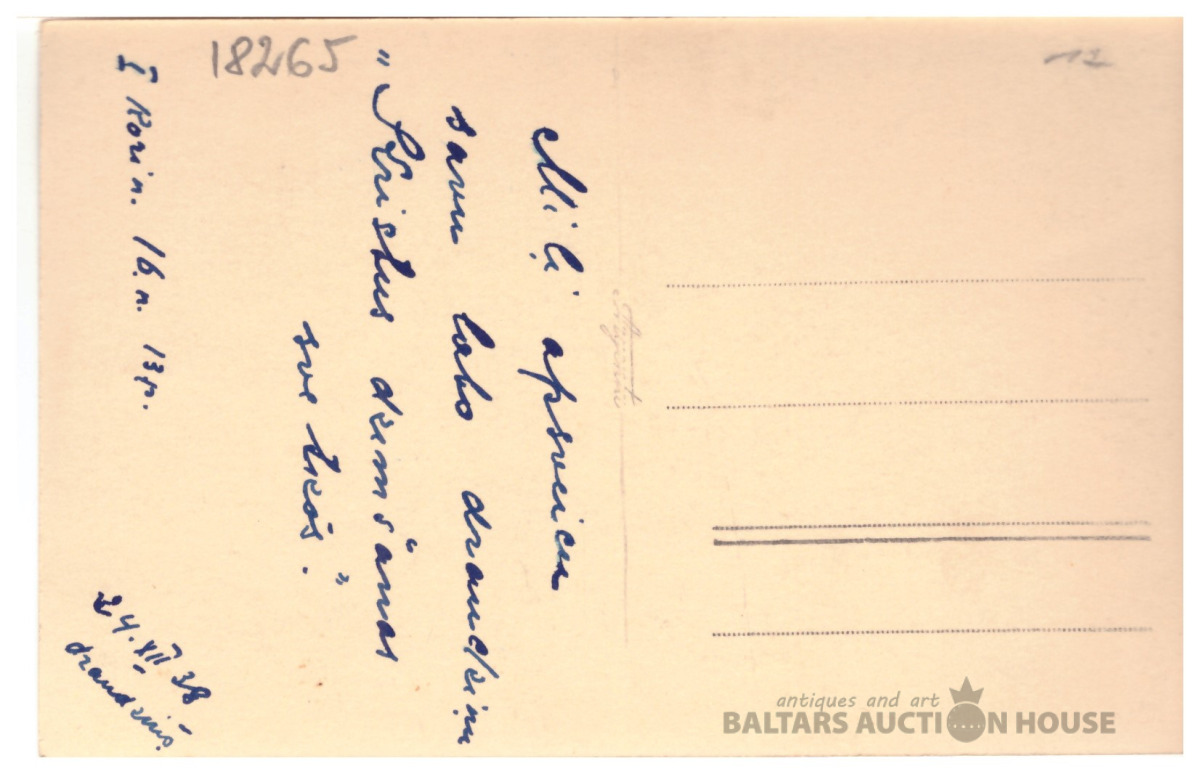 18265
12
Mīļi apsveicu
savu labo draudziņu
"Kristus dzimšanas
svētkos."
I Korin. 16.n. 13p.
24.XII 38
draudzīņš.
antiques and art
BALTARS AUCTION HOUSE